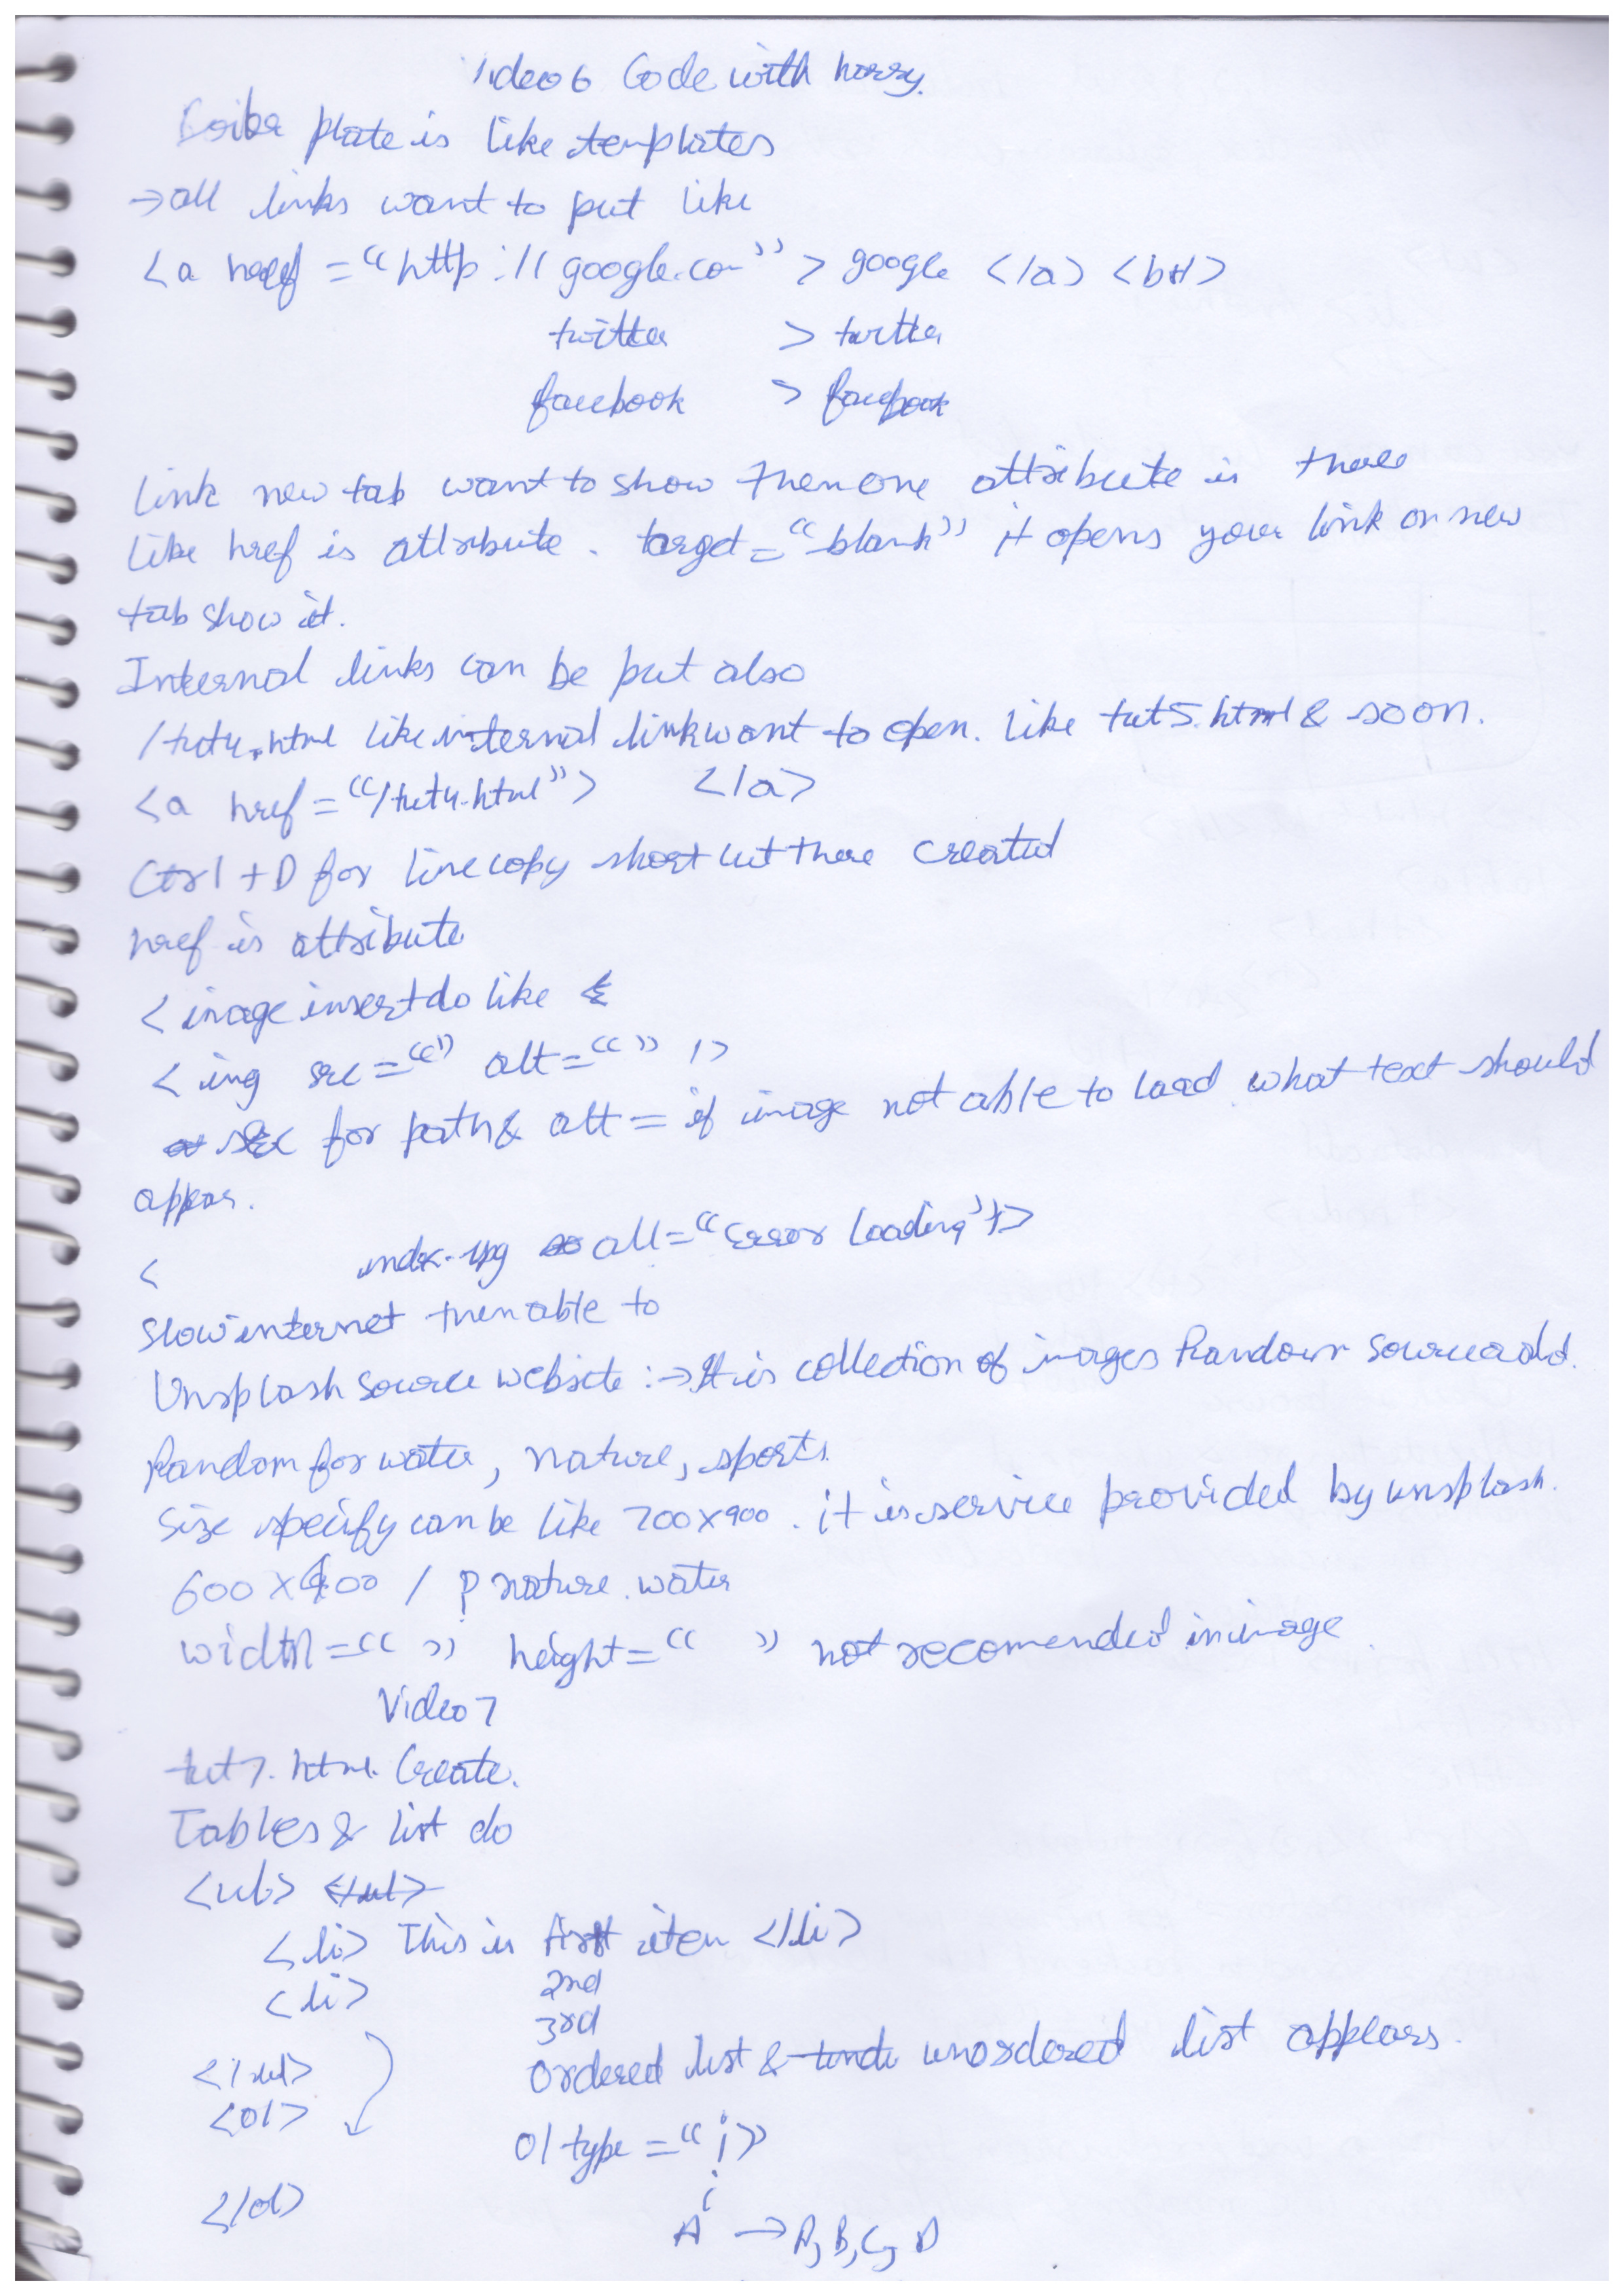 Video 6 Code with harry.
plate is like templates
→ all links want to put like
<a href = "http://google.com"> google </a> <br>
twitter > twitter
facebook > facebook
Link new tab want to show then one attribute is there
like href is attribute. target = "_blank" it opens your link on new
tab show it.
Internal links can be put also
/tut4.html like internal link want to open. like tut5.html & so on.
<a href = "/tut4.html"> </a>
Ctrl + D for line copy short cut there created
href is attribute
< image insert do like
< img src = "" alt = "" />
src for path & alt = if image not able to load what text should
appear.
< index.jpg alt = "Error loading"/>
Slow internet then able to
Unsplash source website :→ It is collection of images Random source add.
Random for water, nature, sports.
Size specify can be like 700x900. it is service provided by unsplash.
600 x 400 / ? nature. water
width = " " height = " " not recomended in image.
Video 7
tut7.html Create.
Tables & list do
<ul> </ul>
<li> This is first item </li>
<li> 2nd
3rd
</ul> Ordered list & unordered list appears.
<ol>
ol type = "i"
</ol>
A → A, B, C, D